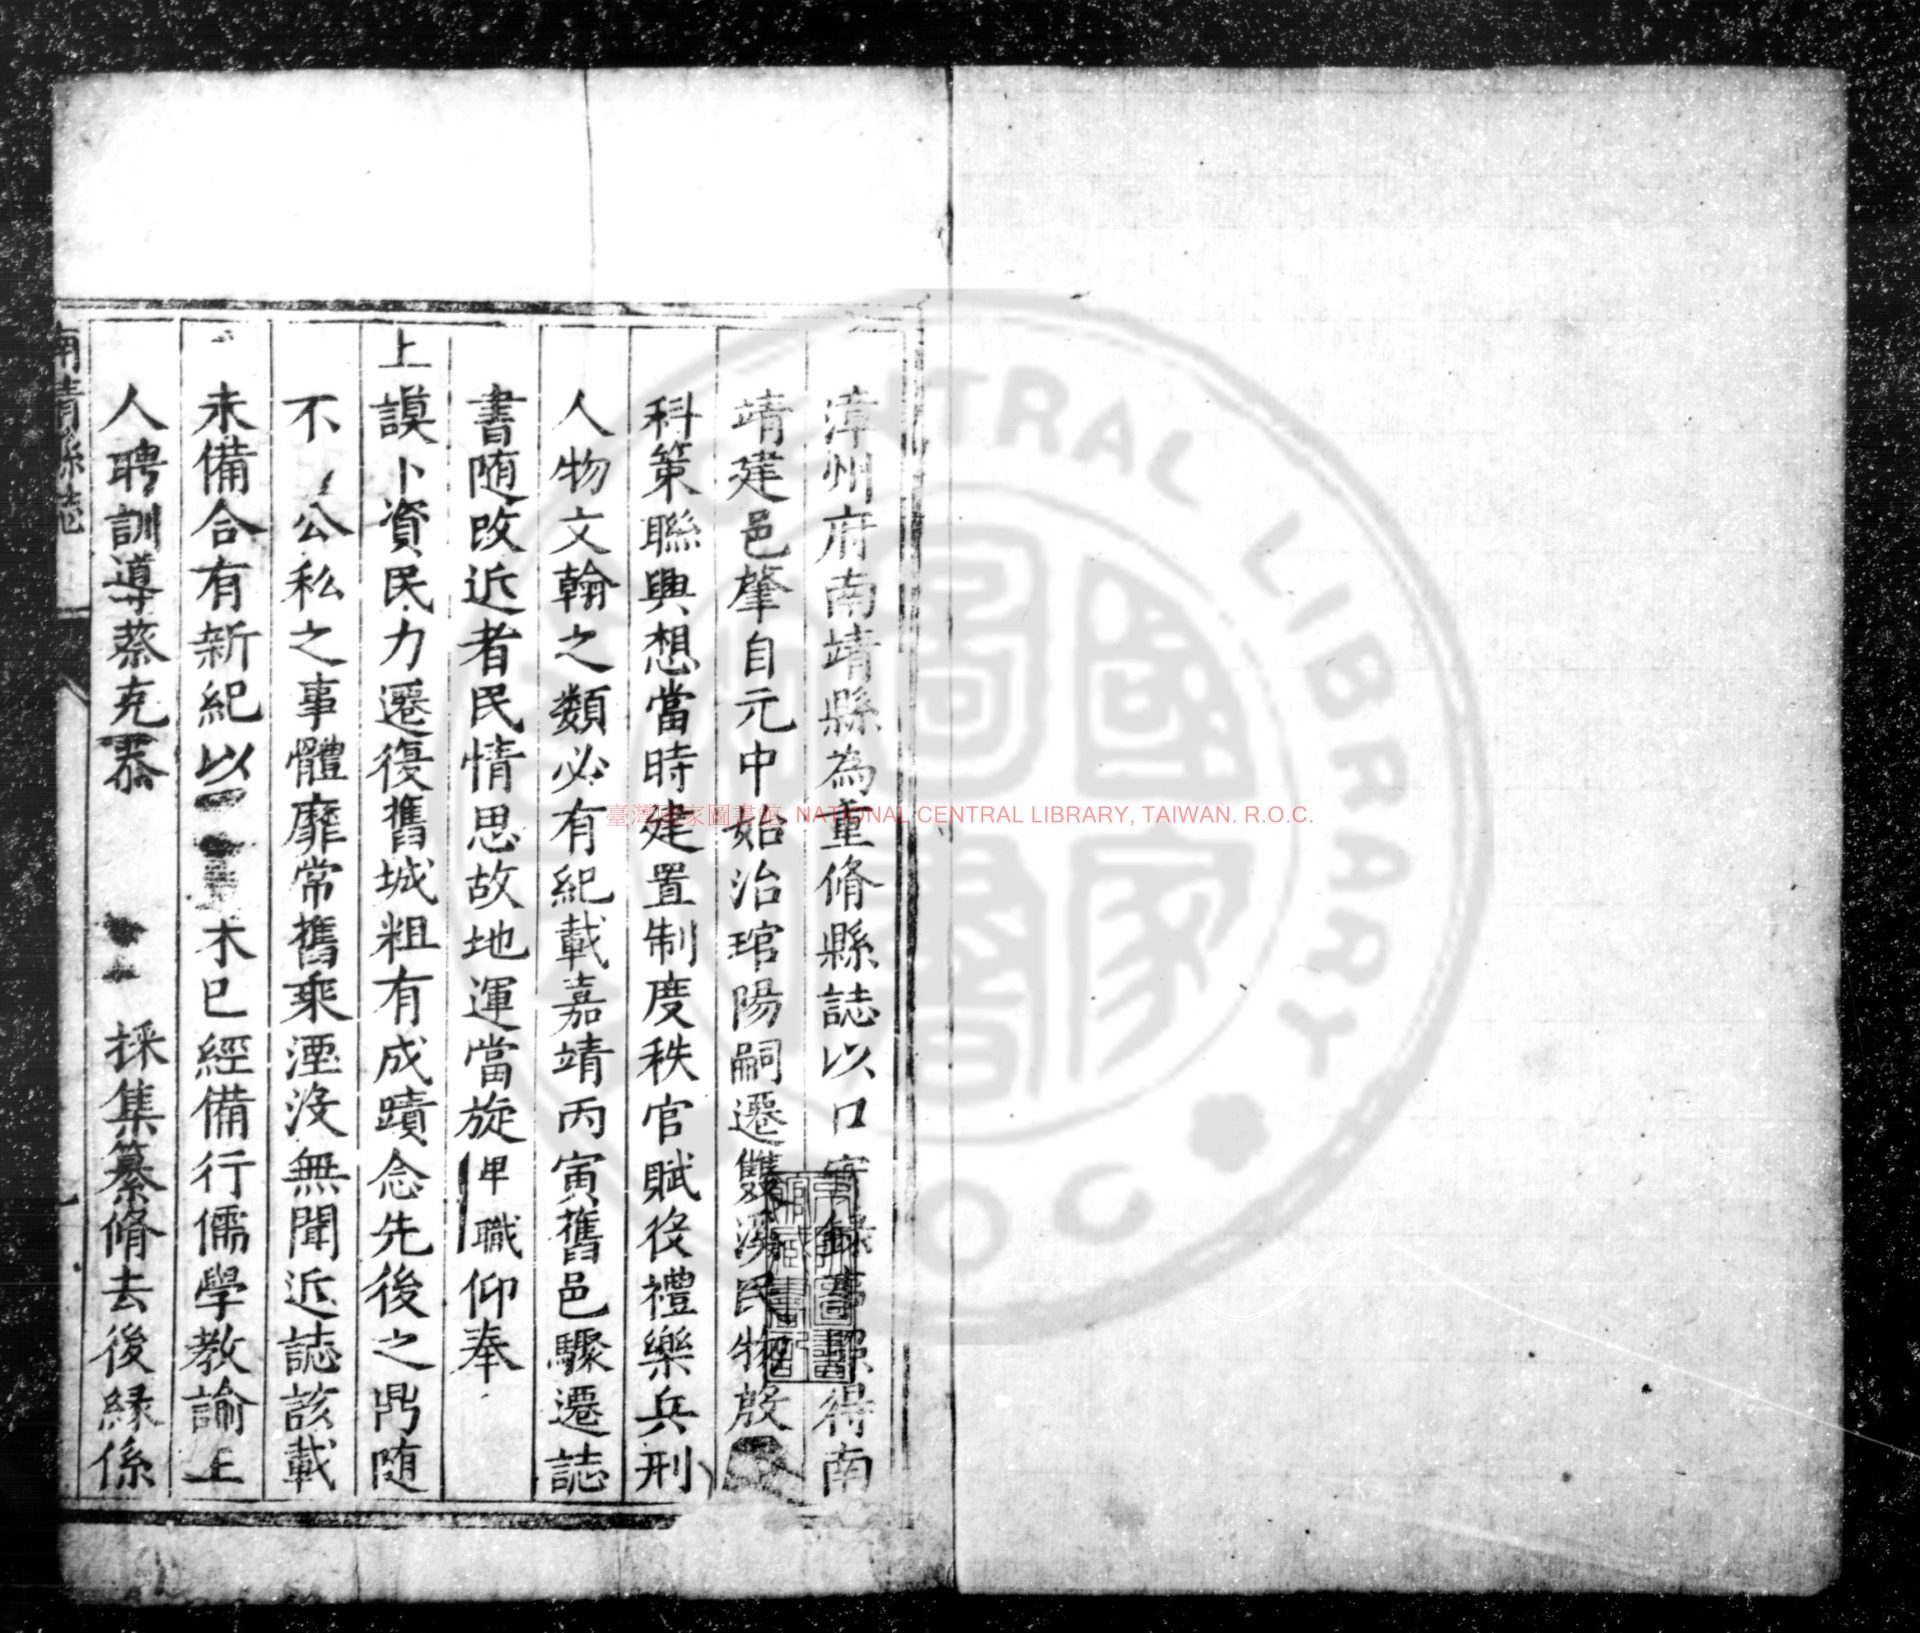 漳州府南靖縣為重脩縣誌以口實録事照得南
靖建邑肇自元中始治琯陽嗣遷雙溪民物殷
科策聯興想當時建置制度秩官賦役禮樂兵刑
人物文翰之類必有紀載嘉靖丙寅舊邑驟遷誌
書随改近者民情思故地運當旋卑職仰奉
上謨卜資民力遷復舊城粗有成蹟念先後之鼎随
不公私之事體靡常舊乘湮沒無聞近誌該載
未備合有新紀以木已經備行儒學教諭上
人聘訓導蔡克恭 採集纂脩去後縁係
南靖縣誌
臺灣國家圖書館, NATIONAL CENTRAL LIBRARY, TAIWAN. R.O.C.
CENTRAL LIBRARY
國家圖書